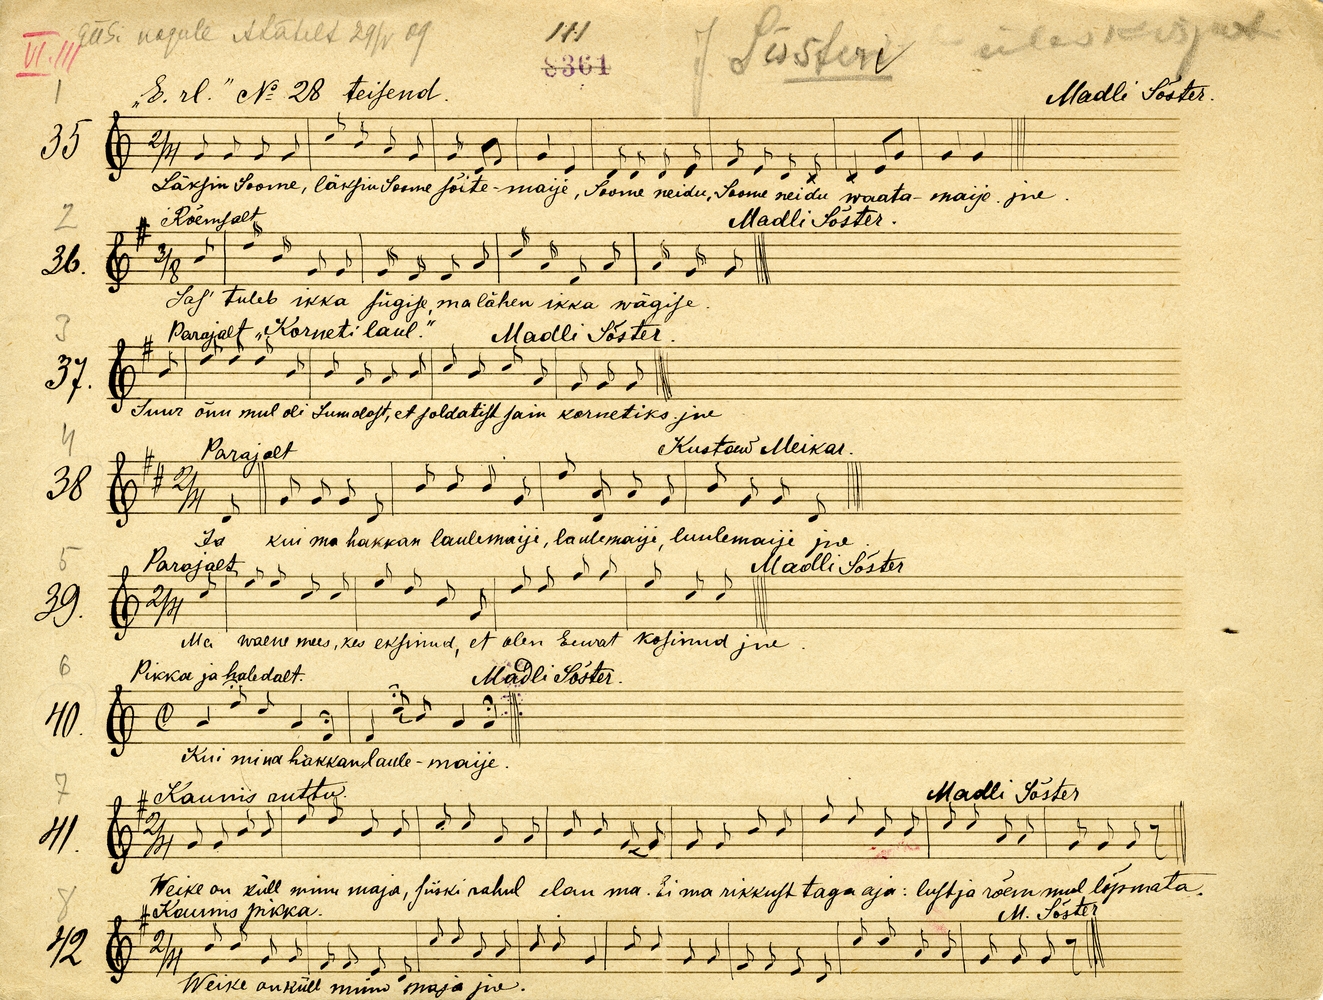 VI.III
111
8361
J. Sösteri
1
„E. rl.” № 28 teisend.
Madli Söster.
35
2/4
Läksin Soome, läksin Soome sõite-maije, Soome neidu, Soome neidu waata-maije. jne.
2
Rõemsalt
Madli Söster.
36.
3/8
Saj' tuleb ikka sügise, ma lähen ikka wägise.
3
Parajalt „Korneti laul.”
Madli Söster.
37.
Suur õnn mul oli sumdast, et soldatist sain kornetiks jne
4
Parajalt
Kustaw Meikar.
38
2/4
Ja kui ma hakkan laulemaije, laulemaije, luulemaije jne.
5
Parajalt
Madli Söster
39.
2/4
Ma waene mees, kes eksinud, et olen Eewat kosinud jne.
6
Pikka ja haledalt.
Madli Söster.
40.
Kui mina hakkan laule-maije.
7
Kaunis ruttu.
Madli Söster
41.
2/4
Weike on küll minu maja, siiski rahul elan ma. Ei ma rikkust taga aja: lust ja rõem mul lõpmata.
8
Kaunis pikka.
M. Söster
42
2/4
Weike on küll minu maja jne.